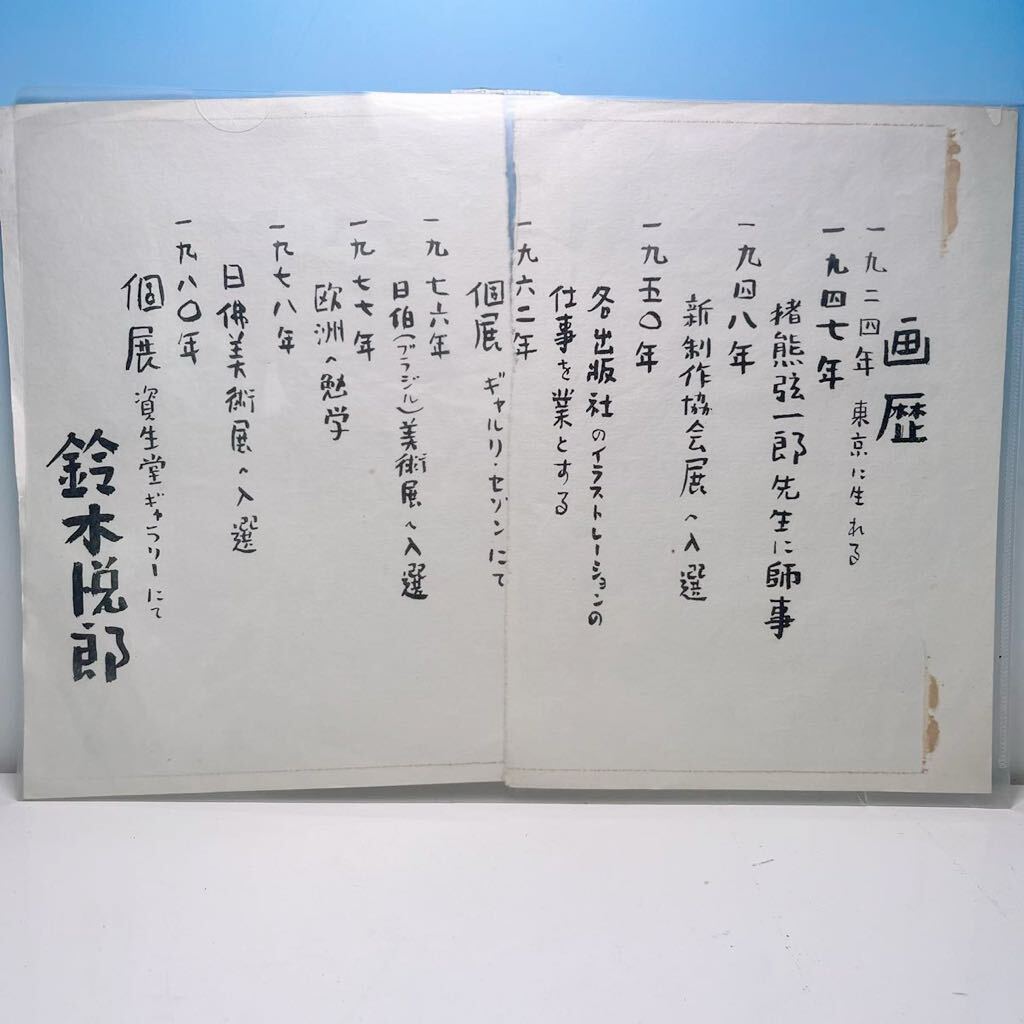 画歴
一九二四年 東京に生れる
一九四七年
猪熊弦一郎先生に師事
一九四八年
新制作協会展へ入選
一九五〇年
各出版社のイラストレーションの
仕事を業とする
一九六二年
個展 ギャルリ・セゾンにて
一九七六年
日伯(ブラジル)美術展へ入選
一九七七年
欧洲へ勉学
一九七八年
日佛美術展へ入選
一九八〇年
個展 資生堂ギャラリーにて
鈴木悦郎